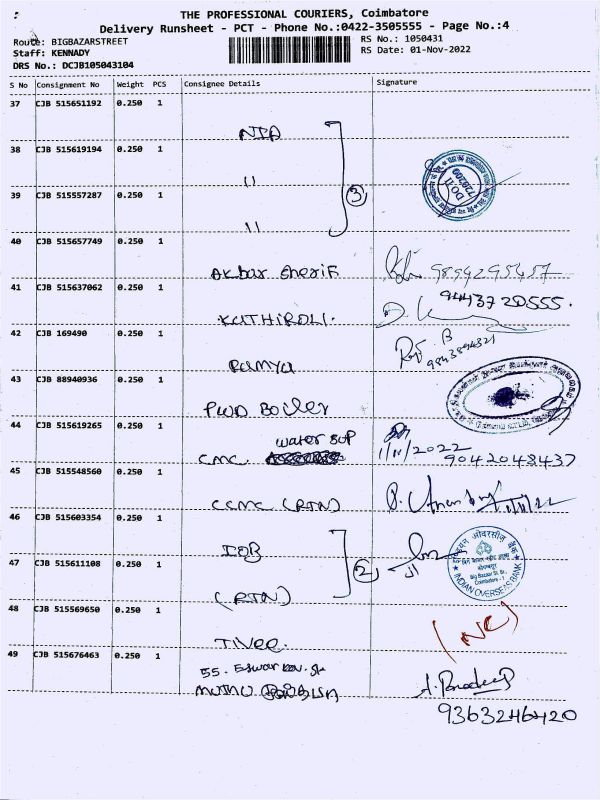 THE PROFESSIONAL COURIERS, Coimbatore
Delivery Runsheet - PCT - Phone No.:0422-3505555 - Page No.:4
Route: BIGBAZARSTREET
RS No.: 1050431
Staff: KENNADY
RS Date: 01-Nov-2022
DRS No.: DCJB105043104
S No Consignment No Weight PCS Consignee Details Signature
37 CJB 515651192 0.250 1
NDA
38 CJB 515619194 0.250 1
11
3
39 CJB 515557287 0.250 1
11
40 CJB 515657749 0.250 1
Akbar Sherif 9894295457
41 CJB 515637062 0.250 1
KATHIROLI. 9443720555.
42 CJB 169490 0.250 1
RAMYA B 9843894321
43 CJB 88940936 0.250 1
PWD Boiler
44 CJB 515619265 0.250 1
water SUP
CMC. 1/11/2022 9042048437
45 CJB 515548560 0.250 1
CCMC (RTN) 1/11/22
46 CJB 515603354 0.250 1
IOB
इंडियन ओवरसीज़ बैंक
Big Bazaar St. Br.,
Coimbatore - 1
INDIAN OVERSEAS BANK
47 CJB 515611108 0.250 1
2
(RTN)
48 CJB 515569650 0.250 1
(NC)
49 CJB 515676463 0.250 1
55. Eswar
A. Pradeep
9363246420